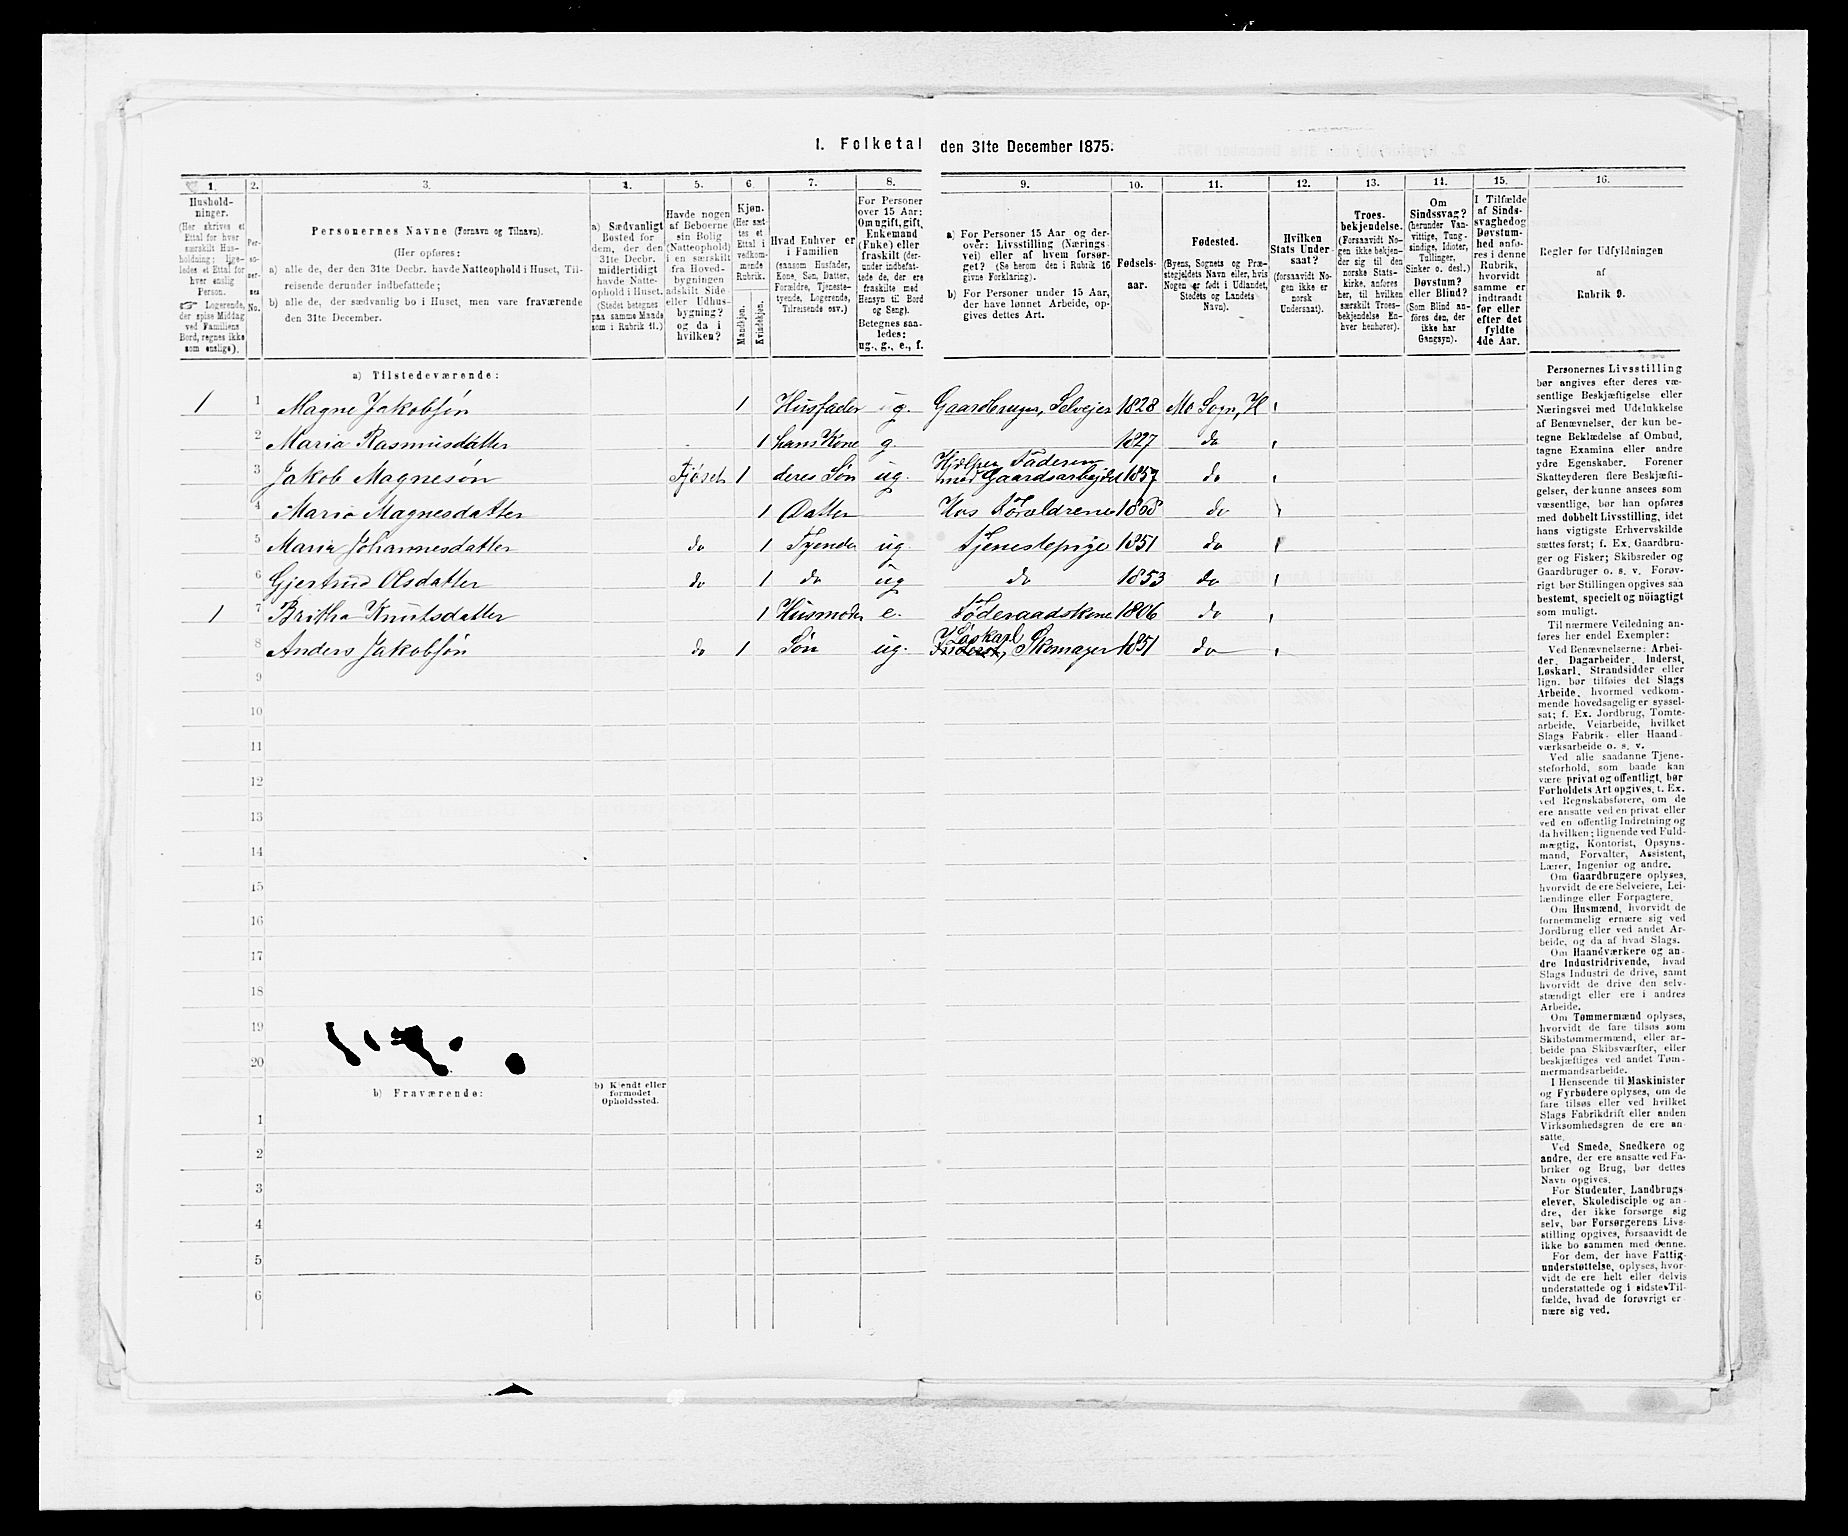 1. Folketal den 31te December 1875.
1. 2. 3. 4. 5. 6. 7. 8. 9. 10. 11. 12. 13. 14. 15. 16.
Hushold-
ninger.
(Her skrives et
Ettal for hver
særskilt Hus-
holdning; lige-
ledes et Ettal for
hver enslig
Person.
☞ Logerende,
der spise Middag
ved Familiens
Bord, regnes ikke
som enslige).
Per-
so-
ner-
nes
No.
Personernes Navne (Fornavn og Tilnavn).
(Her opføres:
a) alle de, der den 31te Decbr. havde Natteophold i Huset, Til-
reisende derunder indbefattede;
b) alle de, der sædvanlig bo i Huset, men vare fraværende
den 31te December.
a) Sædvanligt
Bosted for
dem, der den
31te Decbr.
midlertidigt
havde Natte-
ophold i Huset.
(Stedet betegnes
paa samme Maade
som i Rubrik 11.)
Havde nogen
af Beboerne
sin Bolig
(Natteophold)
i en særskilt
fra Hoved-
bygningen
adskilt Side
eller Udhus-
bygning?
og da i
hvilken?
Kjøn.
(Her sæt-
tes et
Ettal i
vedkom-
mende
Rubrik.
Mandkjøn.
Kvindekjøn.
Hvad Enhver er
i Familien
(saasom Husfader,
Kone, Søn, Datter,
Forældre, Tjeneste-
tyende, Logerende,
Tilreisende osv.)
For Personer
over 15 Aar:
Om ugift, gift,
Enkemand
(Enke) eller
fraskilt (der-
under indbefat-
tede de, der ere
fraskilte med
Hensyn til Bord
og Seng).
Betegnes saa-
ledes:
ug., g., e., f.
a) For Personer 15 Aar og der-
over: Livsstilling (Nærings-
vei) eller af hvem forsør-
get? (Se herom den i Rubrik 16
givne Forklaring).
b) For Personer under 15 Aar,
der have lønnet Arbeide, op-
gives dettes Art.
Fødsels-
aar.
Fødested.
(Byens, Sognets og Præ-
stegjeldets Navn eller, hvis
Nogen er født i Udlandet,
Stedets og Landets
Navn).
Hvilken
Stats Under-
saat?
(forsaavidt No-
gen ikke er
norsk
Undersaat).
Troes-
bekjendelse.
(Forsaavidt No-
gen ikke bekjen-
der sig til den
norske Stats-
kirke, anføres
her, til hvilken
særskilt Troes-
bekjendelse En-
hver henhører).
Om
Sindssvag?
(herunder Van-
vittige, Tung-
sindige, Idioter,
Tullinger,
Sinker o. desl.)
Døvstum?
eller Blind?
(Som Blind an-
føres den, der
ikke har
Gangsyn).
I Tilfælde
af Sinds-
svaghed og
Døvstum-
hed anfø-
res i denne
Rubrik,
hvorvidt
samme er
indtraadt
før eller
efter det
fyldte
4de Aar.
Regler for Udfyldningen
af
Rubrik 9.
a) Tilstedeværende:
1 1 Magne Jakobsøn 1 Husfader g. Gaardbruger, Selvejer 1828 Mo Sogn, H
2 Maria Rasmusdatter 1 hans Kone g. 1827 do
3 Jakob Magnesøn Fjøset 1 deres Søn ug. Hjelper Faderen med Gaardsarbejdet 1857 do
4 Maria Magnesdatter 1 Datter Hos Forældrene do
5 Maria Johannesdatter do 1 Tyende ug. Tjenestepige 1851 do
6 Gjertrud Olsdatter do 1 do ug do 1853 do
1 7 Britha Knutsdatter 1 Husmoder e. Føderaadskone 1806 do
8 Anders Jakobsøn do 1 Søn ug. Løskarl, Skomager 1851 do
9
10
11
12
13
14
15
16
17
18
19
20
b) Fraværende:
b) Kjendt eller
formodet
Opholdssted.
1
2
3
4
5
6
Personernes Livsstilling
bør angives efter deres væ-
sentlige Beskjæftigelse eller
Næringsvei med Udelukkelse
af Benævnelser, der kun be-
tegne Beklædelse af Ombud,
tagne Examina eller andre
ydre Egenskaber. Forener
Skatteyderen flere Beskjæfti-
gelser, der kunne ansees som
væsentlige, bør han opføres
med dobbelt Livsstilling, idet
hans vigtigste Erhvervskilde
sættes først; f. Ex. Gaardbru-
ger og Fisker; Skibsreder og
Gaardbruger o. s. v. Forøv-
rigt bør Stillingen opgives saa
bestemt, specielt og nøiagtigt
som muligt.
Til nærmere Veiledning an-
føres her endel Exempler:
Ved Benævnelserne: Arbei-
der, Dagarbeider, Inderst,
Løskarl, Strandsidder eller
lign. bør tilføies det Slags
Arbeide, hvormed vedkom-
mende hovedsagelig er syssel-
sat; f. Ex. Jordbrug, Tomte-
arbeide, Veiarbeide, hvilket
Slags Fabrik- eller Haand-
værksarbeide o. s. v.
Ved alle saadanne Tjene-
steforhold, som baade kan
være privat og offentligt, bør
Forholdets Art opgives, t. Ex.
ved Regnskabsførere, om de
ere ansatte ved en privat eller
ved en offentlig Indretning og
da hvilken; lignende ved Fuld-
mægtig, Kontorist, Opsyns-
mand, Forvalter, Assistent,
Lærer, Ingeniør og andre.
Om Gaardbrugere oplyses,
hvorvidt de ere Selveiere, Lei-
lændinge eller Forpagtere.
Om Husmænd, hvorvidt de
fornemmelig ernære sig ved
Jordbrug eller ved andet Ar-
beide, og da af hvad Slags.
Om Haandværkere og an-
dre Industridrivende, hvad
Slags Industri de drive, samt
hvorvidt de drive den selv-
stændigt eller ere i andres
Arbeide.
Om Tømmermænd oplyses,
hvorvidt de fare tilsøs som
Skibstømmermænd, eller ar-
beide paa Skibsværfter, eller
beskjæftiges ved andet Tøm-
mermandsarbeide.
I Henseende til Maskinister
og Fyrbødere oplyses, om de
fare tilsøs eller ved hvilket
Slags Fabrikdrift eller anden
Virksomhedsgren de ere an-
satte.
Ved Smede, Snedkere og
andre, der ere ansatte ved Fa-
briker og Brug, bør dettes
Navn opgives.
For Studenter, Landbrugs-
elever, Skoledisciple og an-
dre, der ikke forsørge sig
selv, bør Forsørgerens Livs-
stilling opgives, forsaavidt de
ikke bo sammen med denne.
For dem, der have Fattig-
understøttelse, oplyses, hvor-
vidt de ere helt eller delvis
understøttede og i sidste Til-
fælde, hvad de forøvrigt er-
nære sig ved.